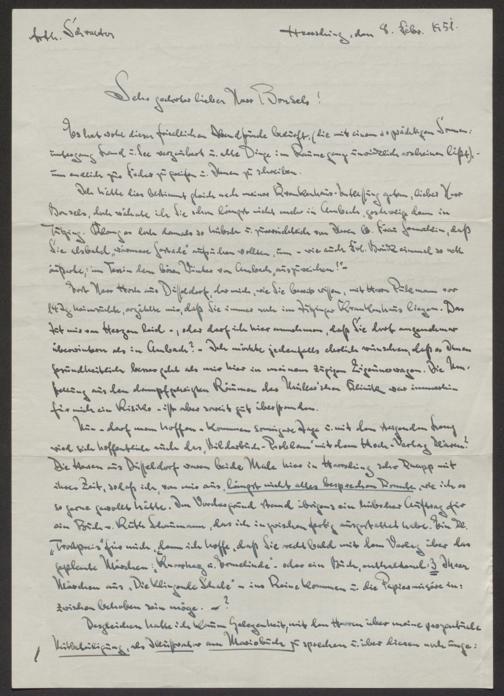 Arth. Schraeter Herrsching, den 8. Febr. 1951.
Sehr geehrter lieber Herr Bonsels!
Es hat wohl dieser friedlichen Abendstunde bedurft, (die mit einem so prächtigen Sonnen-
untergang Land u. See verzaubert u. alle Dinge im Raume ganz unwirklich erscheinen läßt) -
um endlich zur Feder zu greifen u. Ihnen zu schreiben.
Ich hätte dies bestimmt gleich nach meiner Krankenhaus-Entlassung getan, lieber Herr
Bonsels, doch wähnte ich Sie schon längst nicht mehr in Ambach, geschweige denn in
Tutzing. Klang es doch damals so hübsch u. zuversichtlich von Ihrer Gemahlin, daß
Sie alsbald „wärmere Gestade" aufsuchen wollten, um - wie auch Frl. einmal so nett
äußerte, im Tessin dem bösen Winter von Ambach auszuweichen!" -
Dort Herr Hoch aus Düsseldorf, der mich, wie Sie bereits wissen, mit Herrn vor
14 Tg. heimsuchte, erzählte mir, daß Sie immer noch im Tutzinger Krankenhaus liegen. Das
tut mir von Herzen leid -, oder darf ich hier annehmen, daß Sie dort angenehmer
überwintern als in Ambach? - Ich möchte jedenfalls ehrlich wünschen, daß es Ihnen
gesundheitlich besser geht als mir hier in meinem zugigen Zigeunerwagen. Die Um-
stellung aus den dampfgeheizten Räumen der Klinik war immerhin
für mich ein Risiko - ist aber soweit gut überstanden.
Nun - darf man hoffen - kommen sonnigere Tage u. mit dem steigenden
wird sich hoffentlich auch das „Bilderbuch-Problem" mit dem Hoch-Verlag klären!
Die Herren aus Düsseldorf waren beide Male hier in Herrsching sehr knapp mit
ihrer Zeit, sodaß ich, von mir aus, längst nicht alles besprechen konnte, wie ich es
so gerne gewollt hätte. Im Vordergrund stand übrigens ein hübscher Auftrag für
ein Buch v. Ruth Schaumann, das ich inzwischen fertig ausgestattet habe. Ein kl.
„Trostpreis" für mich, denn ich hoffe, daß Sie recht bald mit dem Verlag über das
geplante Märchen: - oder ein Buch, enthaltend: 3 Ihrer
Märchen aus „Die klingende Schale" - ins Reine kommen u. die Papiermisere in-
zwischen behoben sein möge. - ?
Desgleichen hatte ich kaum Gelegenheit, mit den Herren über meine prozentuale
Mitbeteiligung, als Illustrator am Mariobuch zu sprechen u. über diesen